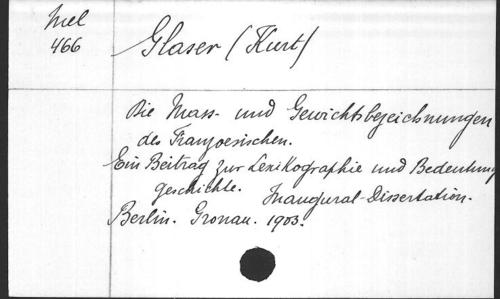 Mel
466
Glaser (Kurt)
Die Mass- und Gewichtsbezeichnungen
des Franzoesischen.
Ein Beitrag zur Lexikographie und Bedeutung
geschichte. Inaugural-Dissertation.
Berlin. Gronau. 1903.